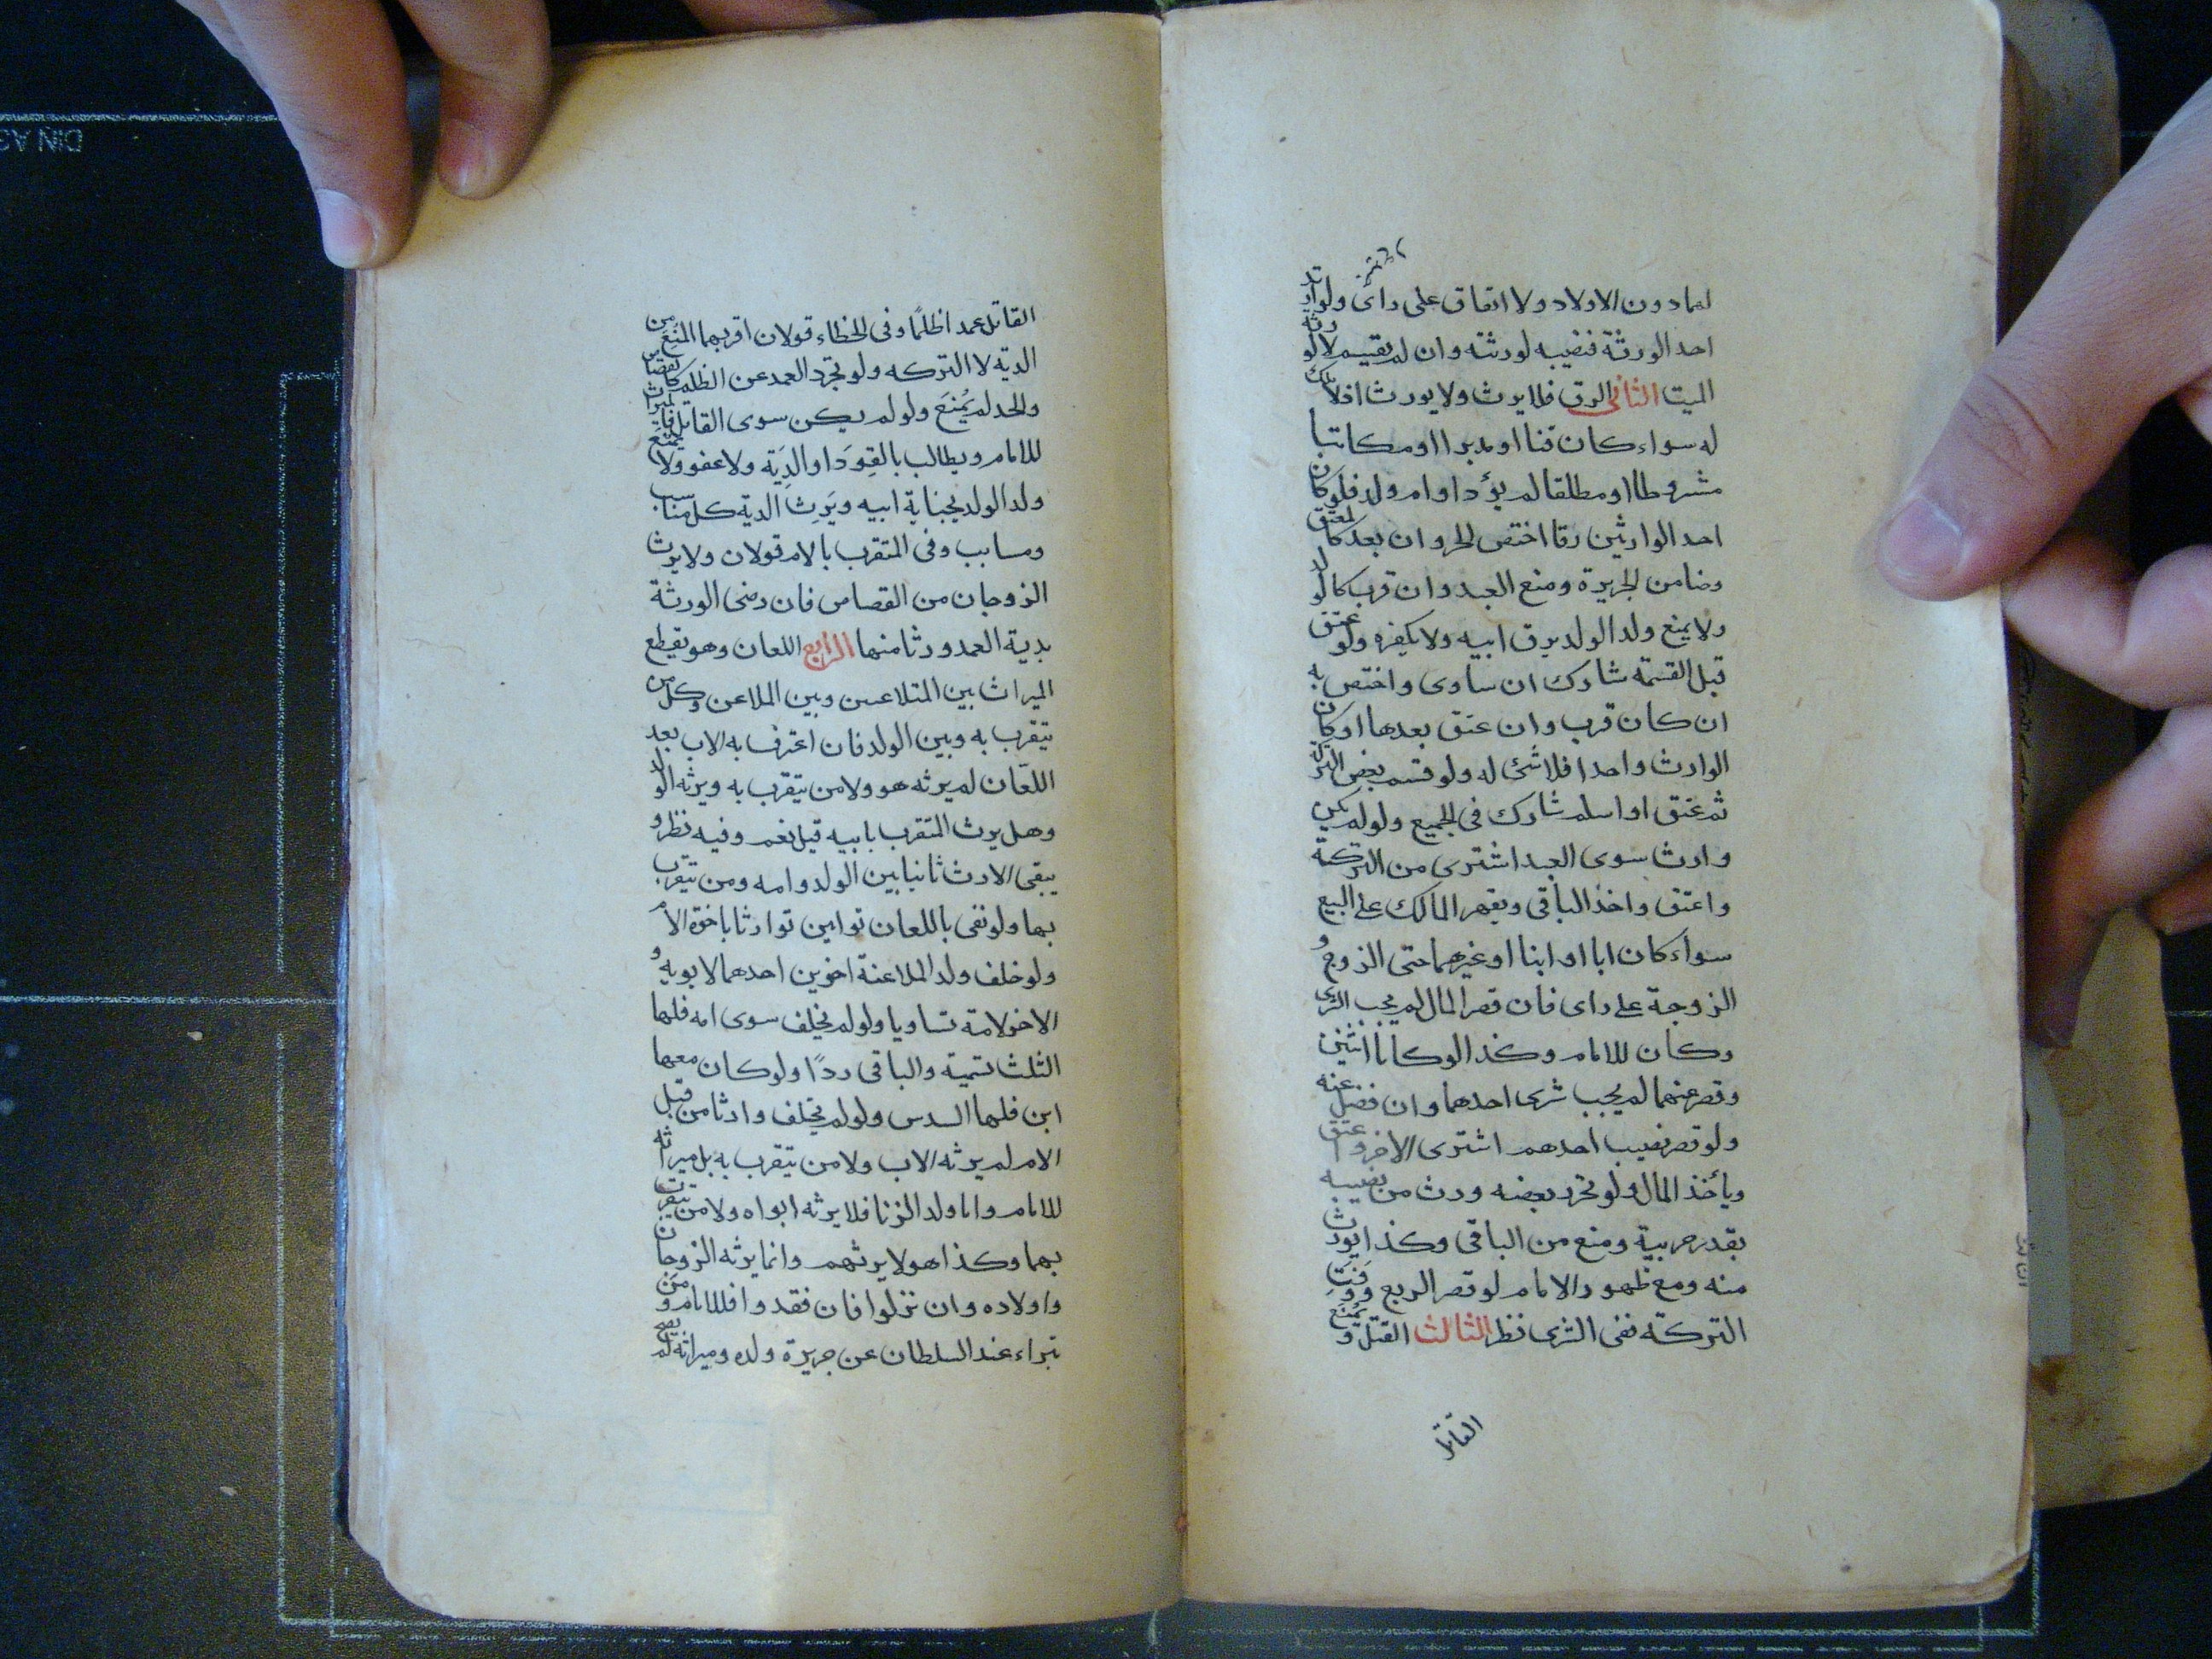 لهما دون الاولاد ولا اتفاق على راى ولو ارتد
احد الورثة فنصيبه لورثته وان لم يقسم لا لورثة
الميت الثانى الرق فلا يرث ولا يورث اذ لا ملك
له سواء كان قنا او مدبرا او مكاتبا
مشروطا او مطلقا لم يؤد او ام ولد فلو كان
احد الوارثين رقا اختص الحر وان بعد كالمعتق
وضامن الجريرة ومنع العبد وان قرب كالولد
ولا يمنع ولد الولد برق ابيه ولا بكفره ولو عتق
قبل القسمة شارك ان ساوى واختص به
ان كان قرب وان عتق بعدها او كان
الوارث واحدا فلا شئ له ولو قسم بعض التركة
ثم عتق او اسلم شارك فى الجميع ولو لم يكن
وارث سوى العبد اشترى من التركة
واعتق واخذ الباقى ويقهر المالك على البيع
سواء كان ابا او ابنا او غيرهما حتى الزوج و
الزوجة على راى فان قصر المال لم يجب الشرى
وكان للامام وكذا لو كانا اثنين
وقصر عنهما لم يجب شرى احدهما وان فضل عنه
ولو قصر نصيب احدهم اشترى الاخر واعتق
ويأخذ المال ولو تحرر بعضه ورث من نصيبه
بقدر حريية ومنع من الباقى وكذا يورث
منه ومع ظهور الامام لو قصر الربع ووفت
التركة ففى الشرى نظر الثالث القتل ويمنع
القاتل
القاتل عمدا ظلمًا وفى الخطاء قولان اقربهما المنع من
الدية لا التركه ولو تجرد العمد عن الظلم كالقصاص
والحد لم يُمنع ولو لم يكن سوى القاتل فالميراث
للامام ويطالب بالقود او الدية ولا عفو ولا يمنع
ولد الولد بجناية ابيه ويرث الدية كل مناسب
ومسابب وفى المتقرب بالام قولان ولا يرث
الزوجان من القصاص فان رضى الورثة
بدية العمد ورثا منها الرابع اللعان وهو يقطع
الميراث بين المتلاعنين وبين الملاعن وكل من
يتقرب به وبين الولد فان اعترف به الاب بعد
اللعان لم يرثه هو ولا من يتقرب به ويرثه الولد
وهل يرث المتقرب بابيه قيل نعم وفيه نظر و
يبقى الارث ثابتا بين الولد وامه ومن يتقرب
بها ولو نفى باللعان توامين توارثا باخوة الام
ولو خلف ولد الملاعنة اخوين احدهما لابويه و
الاخر لامه تساويا ولو لم يخلف سوى امه فلها
الثلث تسمية والباقى ردًا ولو كان معها
ابن فلها السدس ولو لم يخلف وارثا من قبل
الام لم يرثه الاب ولا من يتقرب به بل ميراثه
للامام واما ولد الزنا فلا يرثه ابواه ولا من يتقرب
بهما وكذا هو لا يرثهم وانما يرثه الزوجان
واولاده وان نزلوا فان فقدوا فللامام ومن
تبراء عند السلطان عن جريرة ولده وميراثه لم يصح